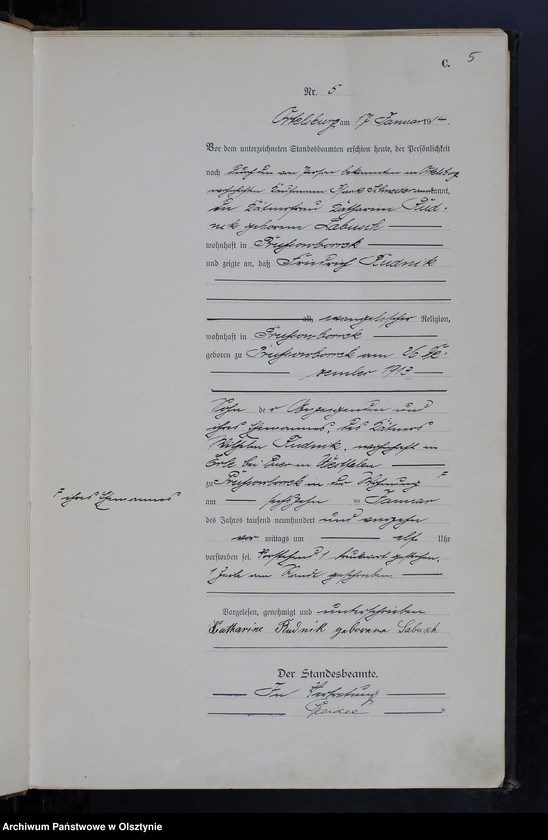 C. 5
Nr. 5
Ortelsburg am 17 Januar 1914.
Vor dem unterzeichneten Standesbeamten erschien heute, der Persönlichkeit
nach durch den von Person bekannten in Ortelsburg
wohnhaften Kaufmann Schneider anerkannt,
die Kätnerfrau Katharine Rud-
nik geborene Labusch
wohnhaft in Prussowborrek
und zeigte an, daß Friedrich Rudnik
alt, evangelischer Religion,
wohnhaft in Prussowborrek
geboren zu Prussowborrek am 26 De-
zember 1913
Sohn der Anzeigenden und
ihres Ehemannes, des Kätners
Wilhelm Rudnik, wohnhaft in
Erle bei Buer in Westfalen
zu Prussowborrek in der Wohnung F
F ihres Ehemannes
am sechszehn ten Januar
des Jahres tausend neunhundert und vierzehn
vor mittags um elf Uhr
verstorben sei. Vorstehend 1 Druckwort gestrichen.
1 Zeile am Rande geschrieben
Vorgelesen, genehmigt und unterschrieben
Katharine Rudnik geborene Labusch
Der Standesbeamte.
In Vertretung
Archiwum Państwowe w Olsztynie